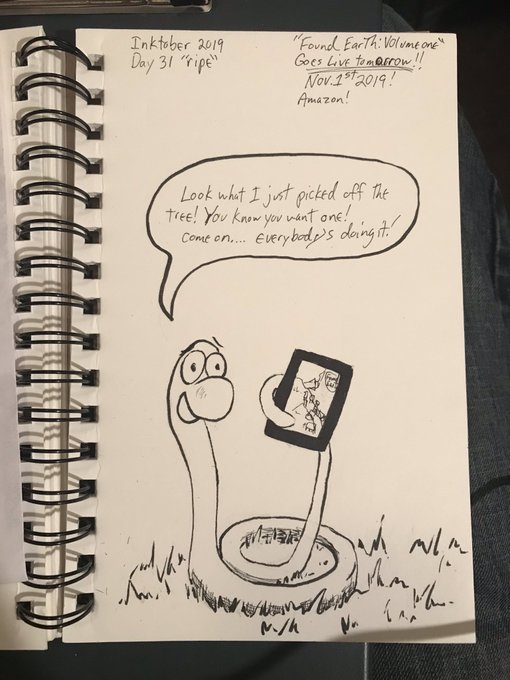 Inktober 2019
Day 31 "ripe"
"Found Earth: Volume one"
Goes Live tomorrow!!
Nov. 1st 2019!
Amazon!
Look what I just picked off the
tree! You know you want one!
Come on.... everybody's doing it!